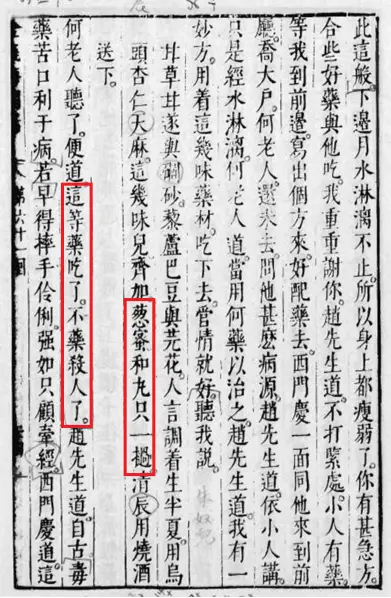 此這般。下邊月水淋漓不止。所以身上都瘦弱了。你有甚急方。
合些好藥與他吃。我重重謝你。趙先生道。不打緊處。小人有藥。
等我到前邊寫出個方來。好配藥去。西門慶一面同他來到前
廳。喬大戶。何老人還未去。問他甚麽病源。趙先生道。依小人講。
只是經水淋漓。何老人道。當用何藥以治之。趙先生道。我有一
妙方。用着這幾味藥材。吃下去。管情就好。聽我說。
甘草甘遂與硇砂。藜蘆巴豆與芫花。人言調着生半夏。用烏
頭杏仁天麻。這幾味兒齊加。葱蜜和丸只一撾。清辰用燒酒
送下。
何老人聽了。便道。這等藥吃了。不藥殺人了。趙先生道。自古毒
藥苦口利于病。若早得摔手伶俐。强如只顧牽經。西門慶道。這
第六十一回